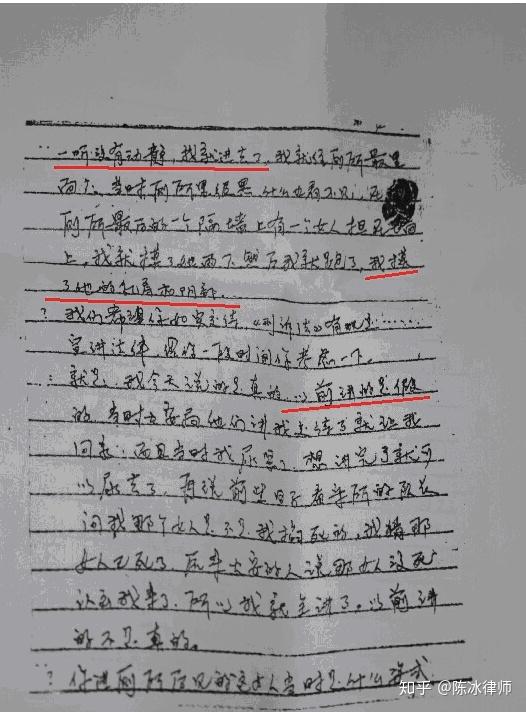 一听没有动静，我就进去了，我就往厕所最里
面个，当时厕所里很黑，什么也看不见，
厕所最后的一个隔墙上有一个女人担在墙
上，我就摸了她两下，然后我就跑了，我摸
了她的乳房和阴部。
？我们希望你如实交待，《刑诉法》有规定……
宣讲法律，给你一段时间你考虑一下。
：就是，我今天说的是真的，以前讲的是假
的，当时公安局他们讲我交待了就让我
回家，而且当时我尿急，想讲完了就可
以尿去了，再说前些日子看守所的队长
问我那个女人是不是我掐死的，我猜那
女人已死了，后来公安的人说那女人没死
认出我来了，所以我就全讲了。以前讲
的不是真的。
？你进厕所后见的这女人当时是什么姿式
知乎 @陈冰律师